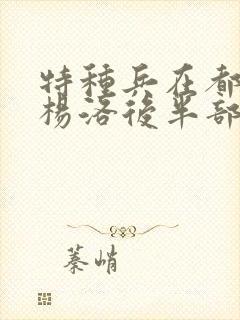 特種兵在都
楊洛後半部
蓁峭